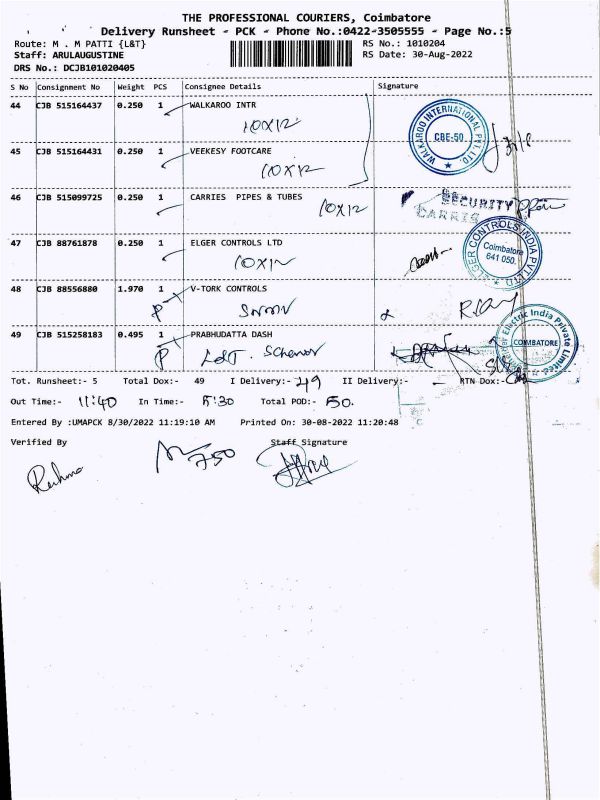 THE PROFESSIONAL COURIERS, Coimbatore
Delivery Runsheet - PCK - Phone No.:0422-3505555 - Page No.:5
Route: M . M PATTI {L&T} RS No.: 1010204
Staff: ARULAUGUSTINE RS Date: 30-Aug-2022
DRS No.: DCJB101020405
S No Consignment No Weight PCS Consignee Details Signature
44 CJB 515164437 0.250 1 WALKAROO INTR
10X12
WALKAROO INTERNATIONAL PVT. LTD. CBE-50
45 CJB 515164431 0.250 1 VEEKESY FOOTCARE
10X12
46 CJB 515099725 0.250 1 CARRIES PIPES & TUBES
10X12
SECURITY
47 CJB 88761878 0.250 1 ELGER CONTROLS LTD
10X12
ELGER CONTROLS INDIA PVT LTD Coimbatore 641 050.
48 CJB 88556880 1.970 1 V-TORK CONTROLS
P
49 CJB 515258183 0.495 1 PRABHUDATTA DASH
P L&T
Electric India Private Limited COIMBATORE
Tot. Runsheet:- 5 Total Dox:- 49 I Delivery:- 49 II Delivery:- - RTN Dox:-
Out Time:- 11:40 In Time:- 5:30 Total POD:- 50.
Entered By :UMAPCK 8/30/2022 11:19:10 AM Printed On: 30-08-2022 11:20:48
Verified By Staff Signature
750